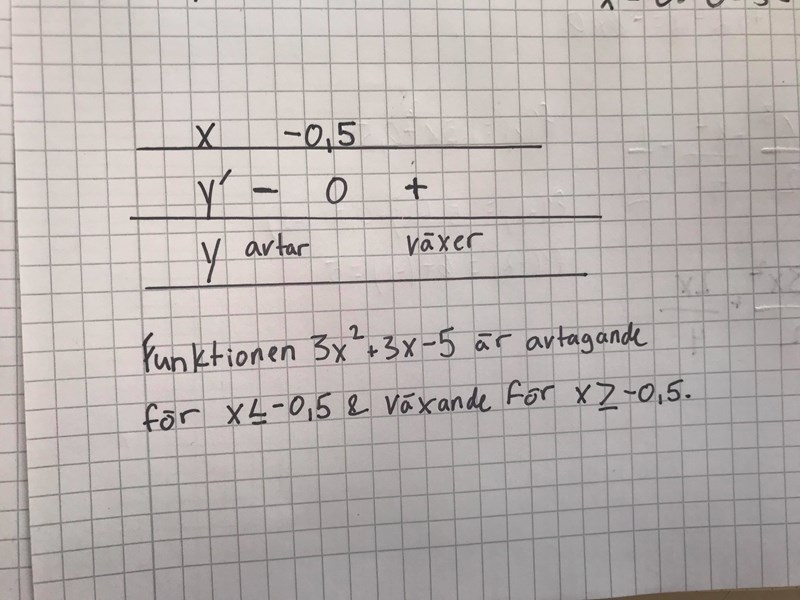 x -0,5
y′ - 0 +
y avtar växer
Funktionen 3x²+3x-5 är avtagande
för x≤-0,5 & växande för x≥-0,5.